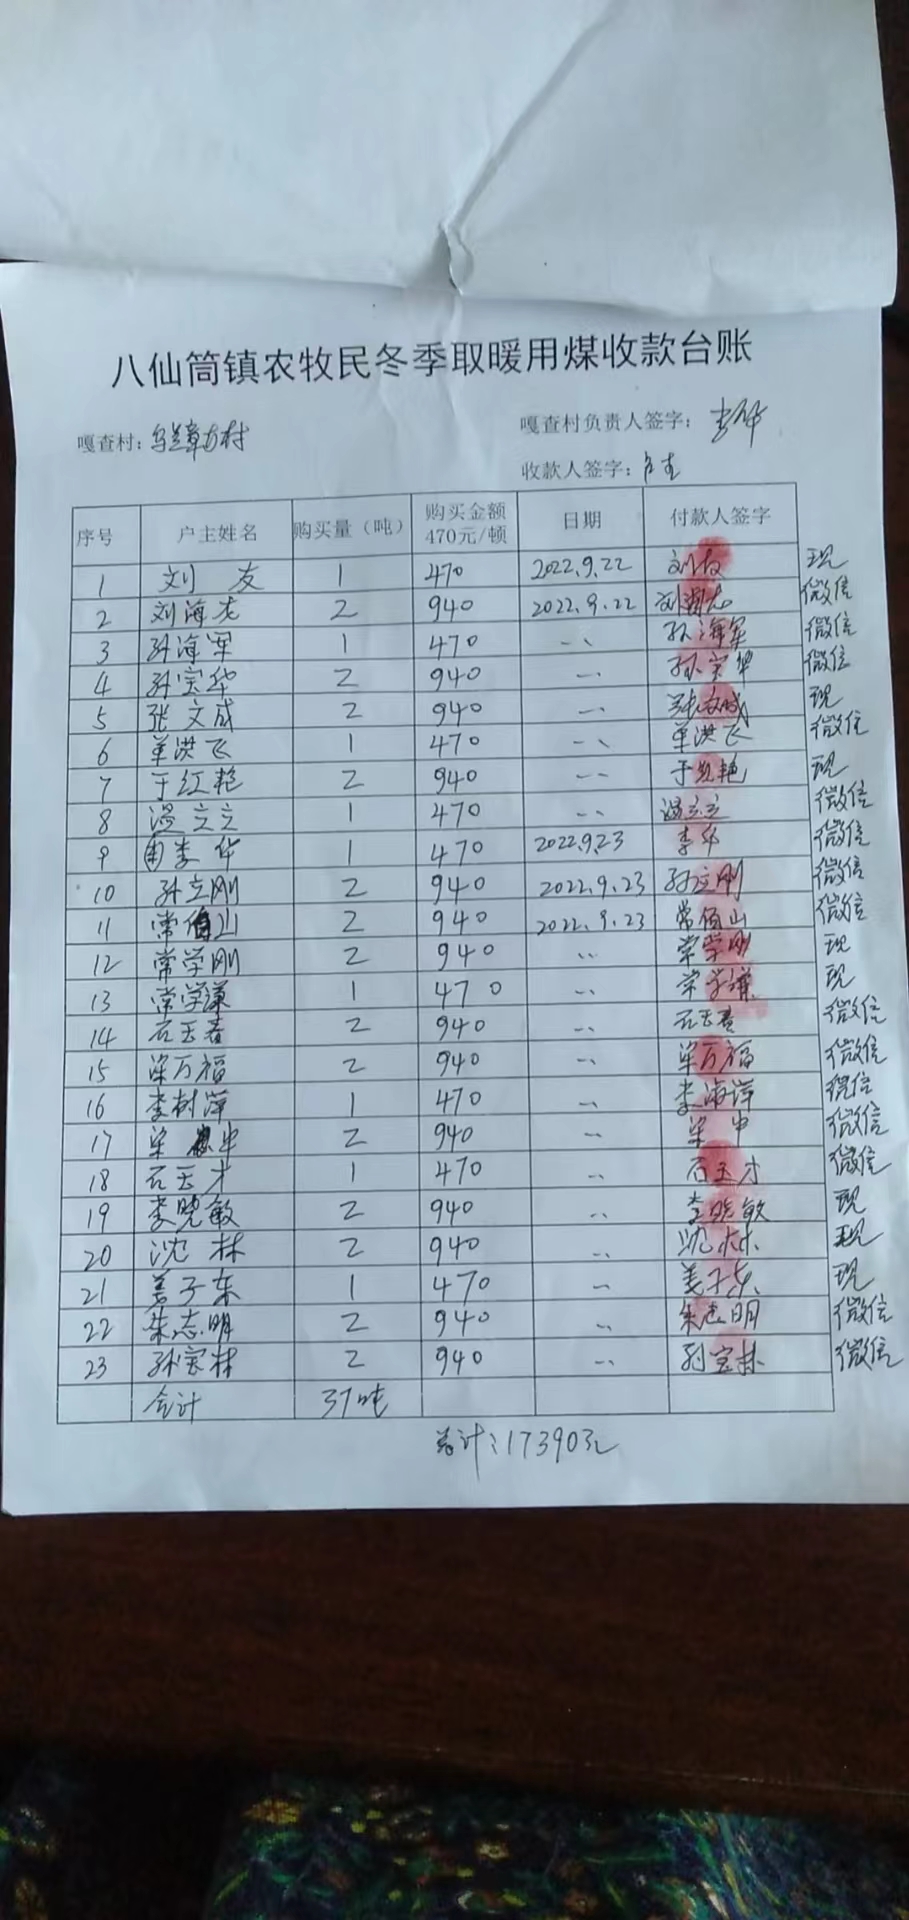 八仙筒镇农牧民冬季取暖用煤收款台账
嘎查村：乌兰章古村 嘎查村负责人签字：李华
收款人签字：
序号 户主姓名 购买量（吨） 购买金额 470元/顿 日期 付款人签字
1 刘友 1 470 2022.9.22 刘友 现
2 刘海龙 2 940 2022.9.22 微信
3 孙海军 1 470 、、 孙海军 微信
4 孙宝华 2 940 、、 孙宝华 微信
5 张文成 2 940 、、 张文成 现
6 单洪飞 1 470 、、 单洪飞 微信
7 于红艳 2 940 、、 于红艳 现
8 立立 1 470 、、 立立 微信
9 李华 1 470 2022.9.23 李华 微信
10 孙立刚 2 940 2022.9.23 孙立刚 微信
11 常佰山 2 940 2022.9.23 常佰山 微信
12 常学刚 2 940 、、 常学刚 现
13 常学谦 1 470 、、 常学谦 现
14 石玉春 2 940 、、 石玉春 微信
15 梁万福 2 940 、、 梁万福 微信
16 李树萍 1 470 、、 微信
17 梁申 2 940 、、 梁申 微信
18 石玉才 1 470 、、 石玉才 微信
19 李晓敏 2 940 、、 李晓敏 现
20 沈林 2 940 、、 沈林 现
21 姜子东 1 470 、、 姜子东 现
22 朱志明 2 940 、、 朱志明 微信
23 孙宝林 2 940 、、 孙宝林 微信
合计 37吨
总计：17390元